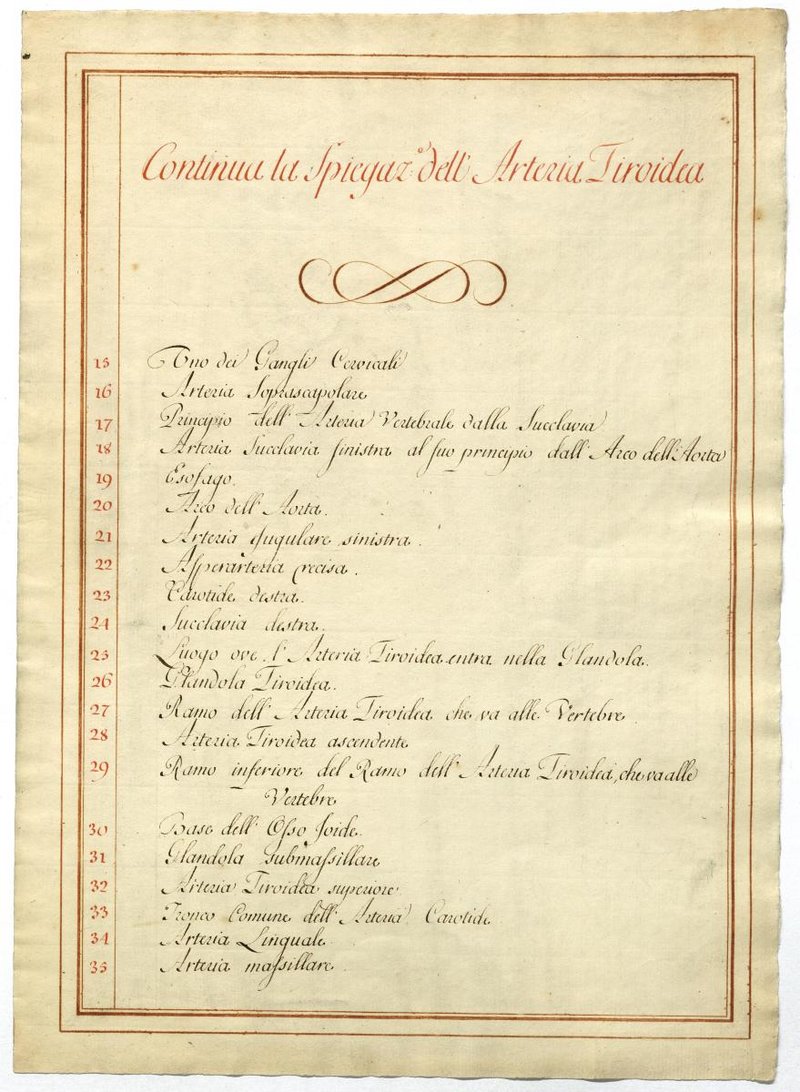 Continua la Spiegaz.º dell' Arteria Tiroidea
15 Uno dei Gangli Cervicali
16 Arteria Soprascapolare
17 Principio dell' Arteria Vertebrale dalla Succlavia
18 Arteria Succlavia sinistra al suo principio dall' Arco dell' Aorta
19 Esofago.
20 Arco dell' Aorta.
21 Arteria Jugulare sinistra.
22 Asperarteria recisa.
23 Carotide destra.
24 Succlavia destra.
25 Luogo ove l' Arteria Tiroidea entra nella Glandola.
26 Glandola Tiroidea.
27 Ramo dell' Arteria Tiroidea che va alle Vertebre
28 Arteria Tiroidea ascendente
29 Ramo inferiore del Ramo dell' Arteria Tiroidea, che va alle
Vertebre
30 Base dell' Osso Joide.
31 Glandola submassillare
32 Arteria Tiroidea superiore
33 Tronco Comune dell' Arteria Carotide
34 Arteria Linguale
35 Arteria massillare.